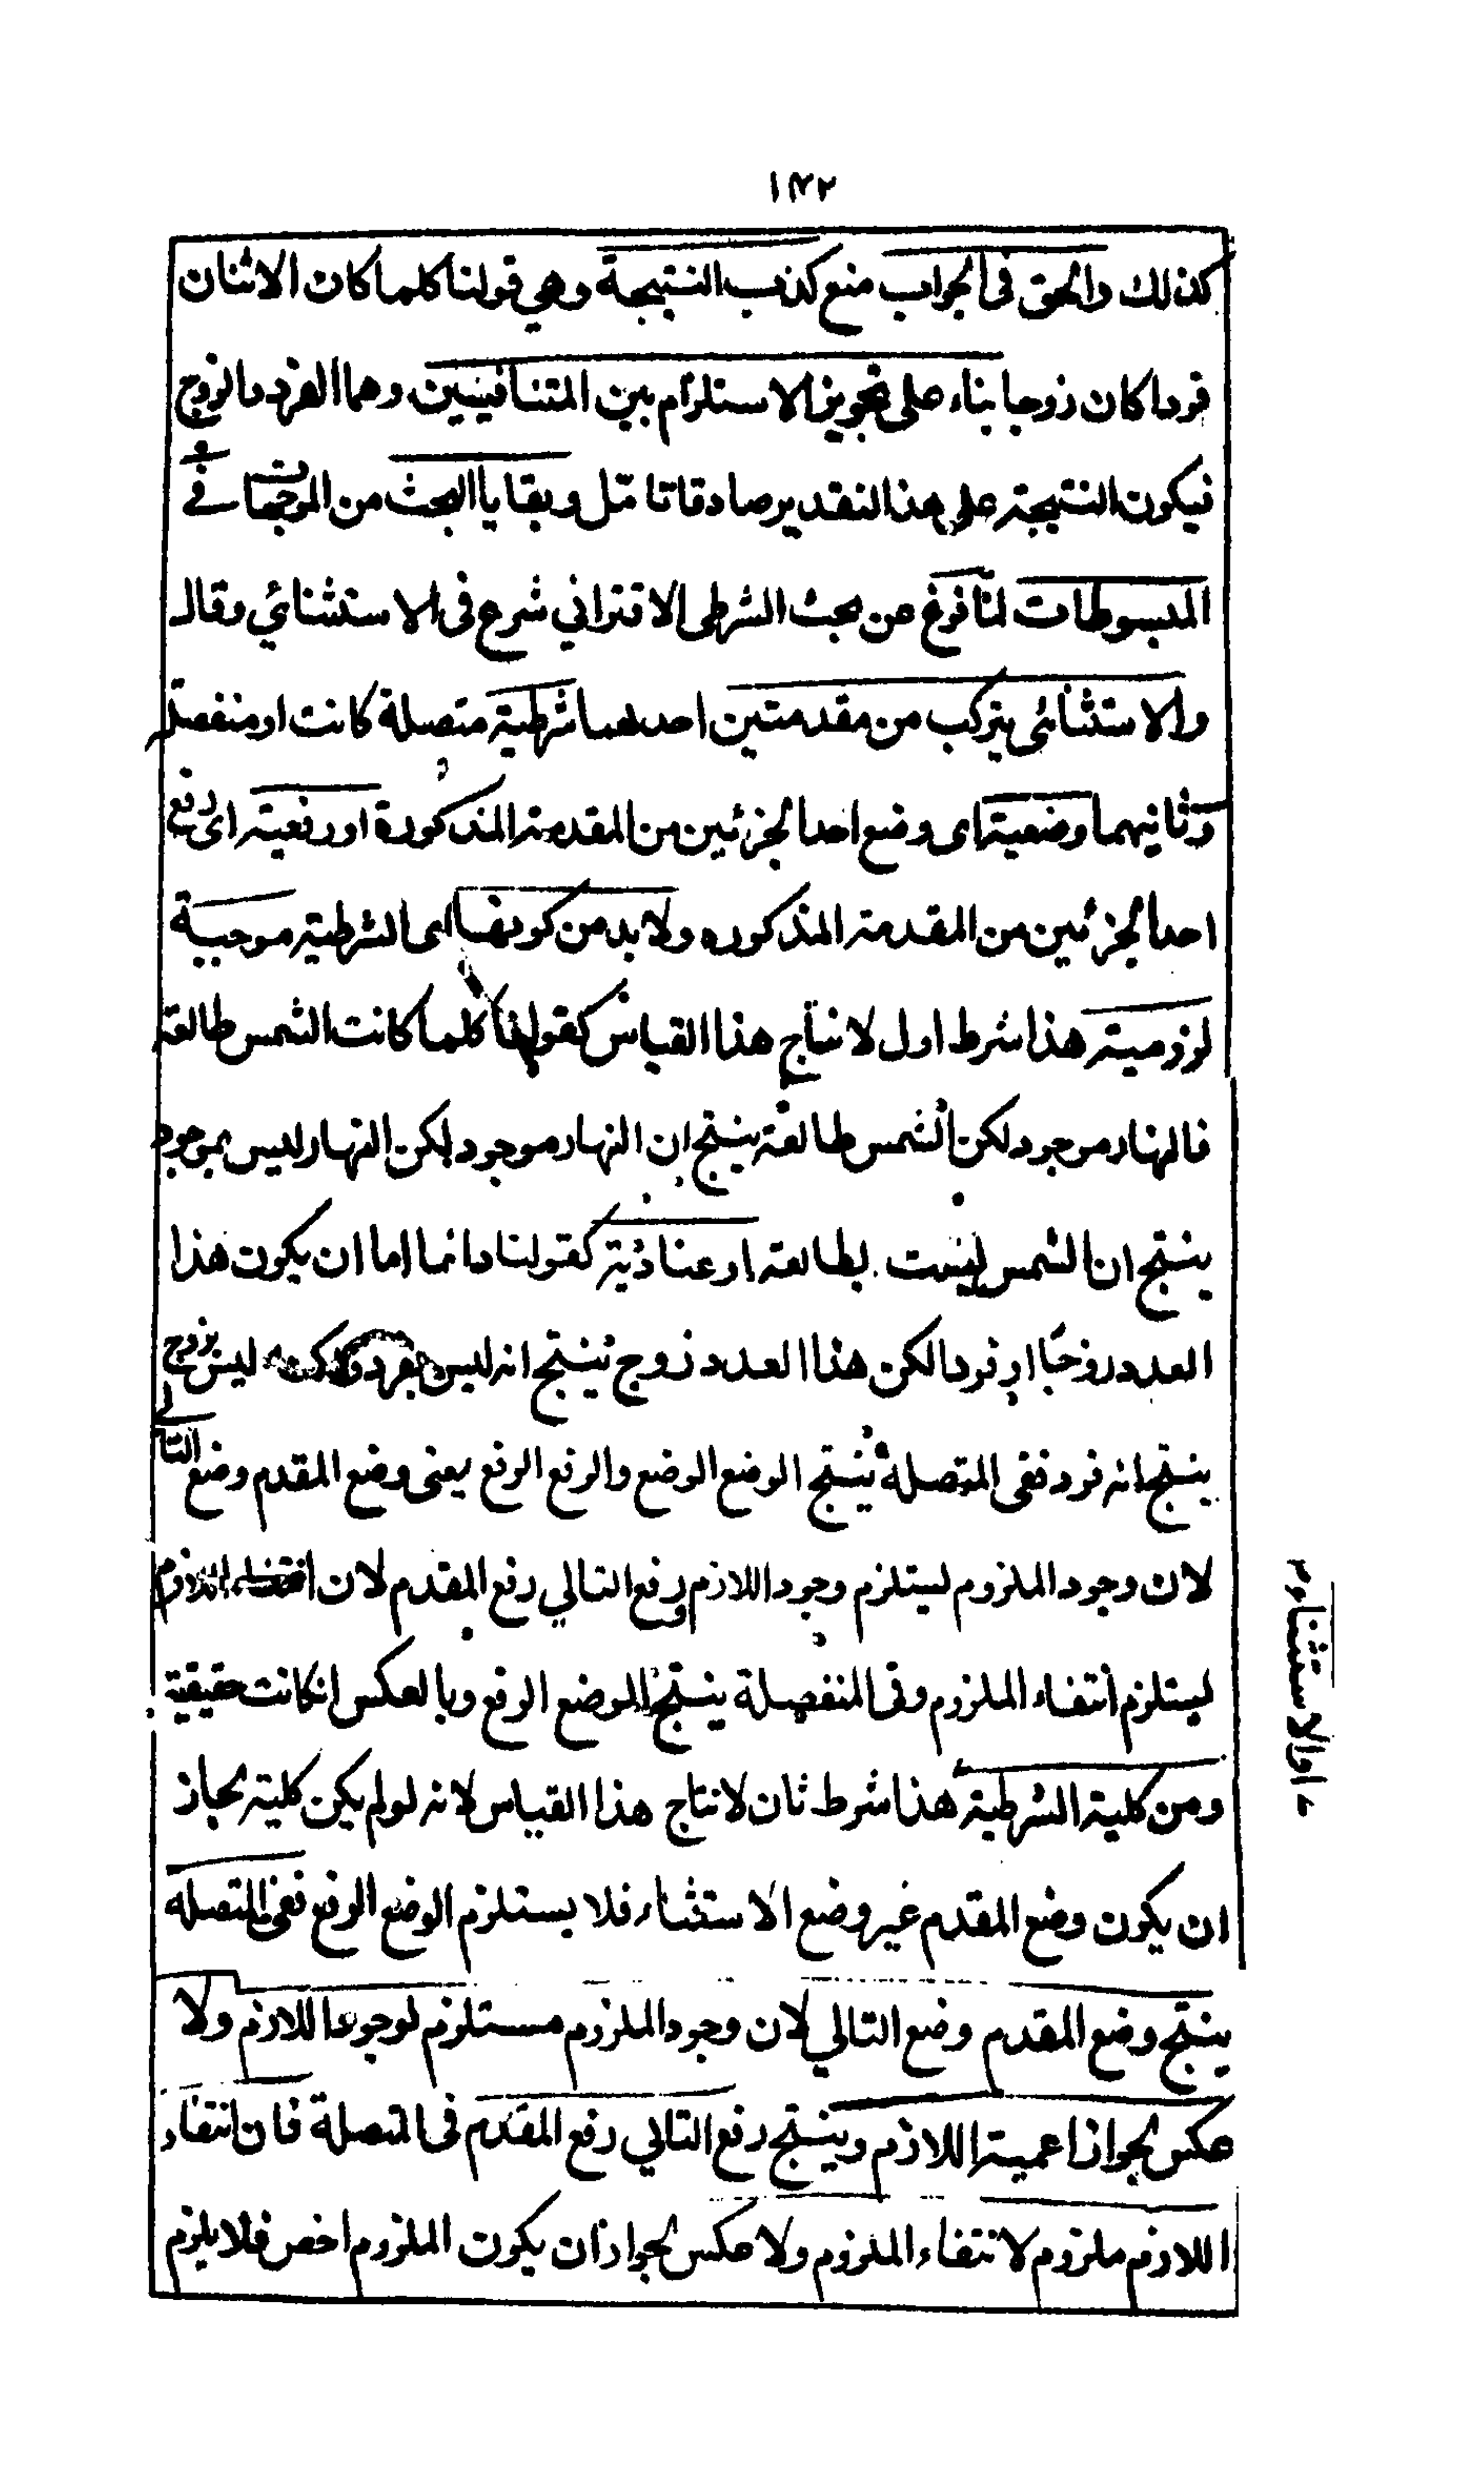 ١٣٢
كذلك والحق فى الجواب منع كذب النتيجة وهي قولنا كلما كان الاثنان
فردا كان زوجا بناء على تجويز الاستلزام بين المتنافيين وهما الفرد والزوج
فيكون النتيجة على هذا التقدير صادقا تامّل وبقايا البحث من الموجهات في
المبسوطات لما فرغ عن بحث الشرطى الاقتراني شرع فى الاستثنائي وقال
والاستثنائى يتركب من مقدمتين احدهما شرطية متصلة كانت او منفصلة
وثانيهما وضعية اى وضع احد الجزئين من المقدمة المذكورة او رفعية اى رفع
احد الجزئين من المقدمة المذكوره ولا بد من كونها اى الشرطية موجبية
لزومية هذا شرط اول لانتاج هذا القياس كقولنا كلما كانت الشمس طالعة
فالنهار موجود لكن الشمس طالعة ينتج ان النهار موجود لكن النهار ليس بموجود
ينتج ان الشمس ليست بطالعة او عنادية كقولنا دائما اما ان يكون هذا
العدد زوجًا او فردا لكن هذا العدد زوج ينتج انه ليس بفرد ليس بزوج
ينتج انه فرد ففى المتصلة ينتج الوضع الوضع والرفع الرفع يعنى وضع المقدم وضع التالي
لان وجود الملزوم ليستلزم وجود اللازم ورفع التالي رفع المقدم لان انتفاء اللازم
ليستلزم انتفاء الملزوم وفى المنفصلة ينتج الوضع الرفع وبالعكس انكانت حقيقية
ومن كلية الشرطية هذا شرط ثان لانتاج هذا القياس لانه لو لم يكن كلية لجاز
ان يكون وضع المقدم غير وضع الاستثناء فلا يستلزم الوضع الرفع ففى المتصله
ينتج وضع المقدم وضع التالي لان وجود الملزوم مستلزم لوجود اللازم ولا
عكس لجواز اعمية اللازم وينتج رفع التالي رفع المقدم فى المتصلة فان انتفاء
اللازم ملزوم لانتفاء الملزوم ولا عكس لجواز ان يكون الملزوم اخص فلا يلزم